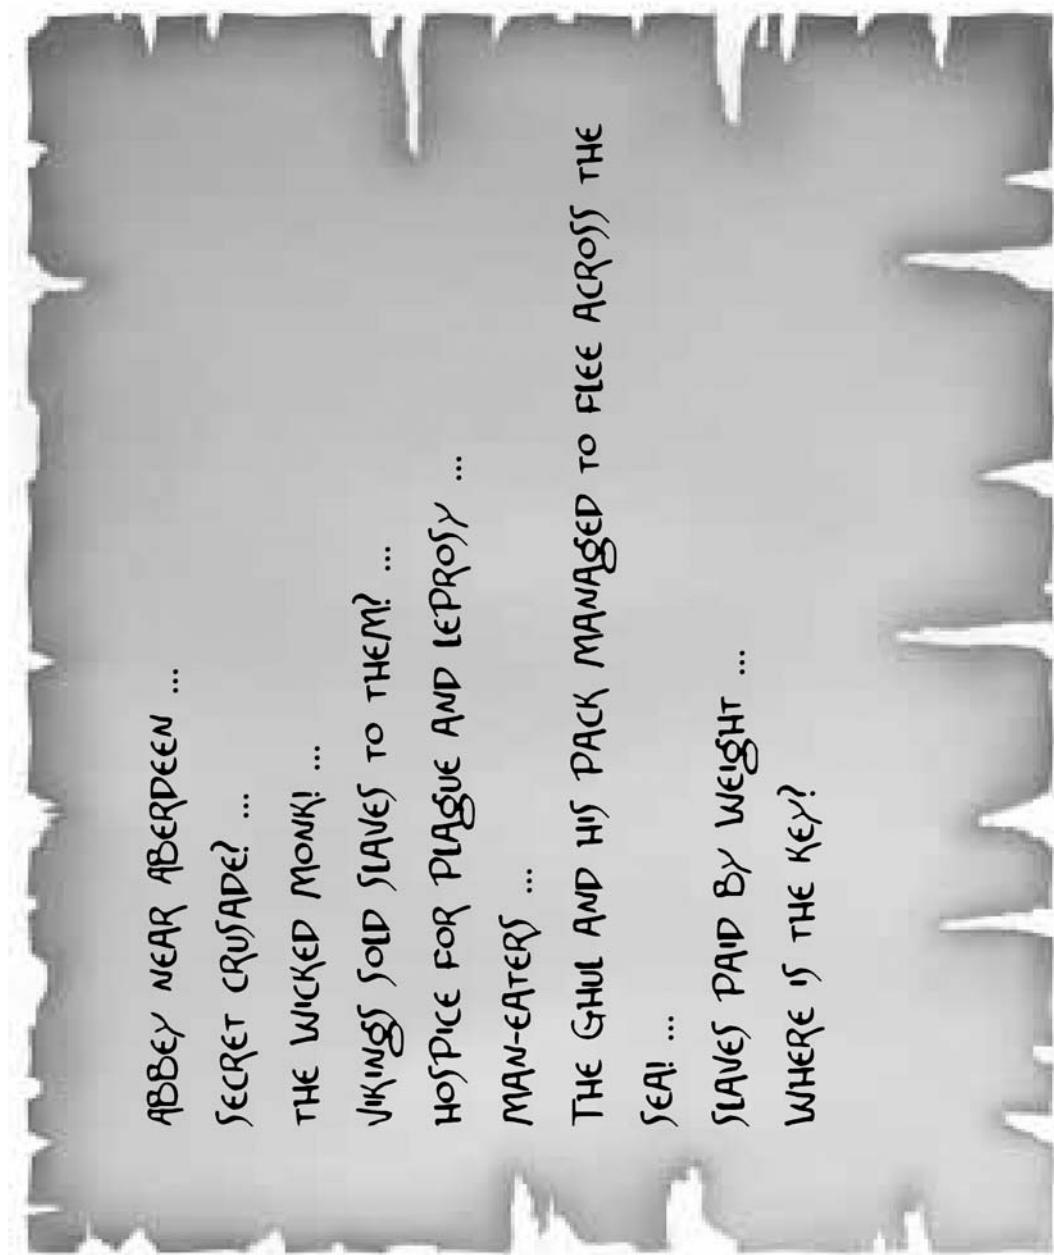 ABBEY NEAR ABERDEEN ...
SECRET CRUSADE? ...
THE WICKED MONK! ...
VIKINGS SOLD SLAVES TO THEM? ...
HOSPICE FOR PLAGUE AND LEPROSY ...
MAN-EATERS ...
THE GHUL AND HIS PACK MANAGED TO FLEE ACROSS THE
SEA! ...
SLAVES PAID BY WEIGHT ...
WHERE IS THE KEY?